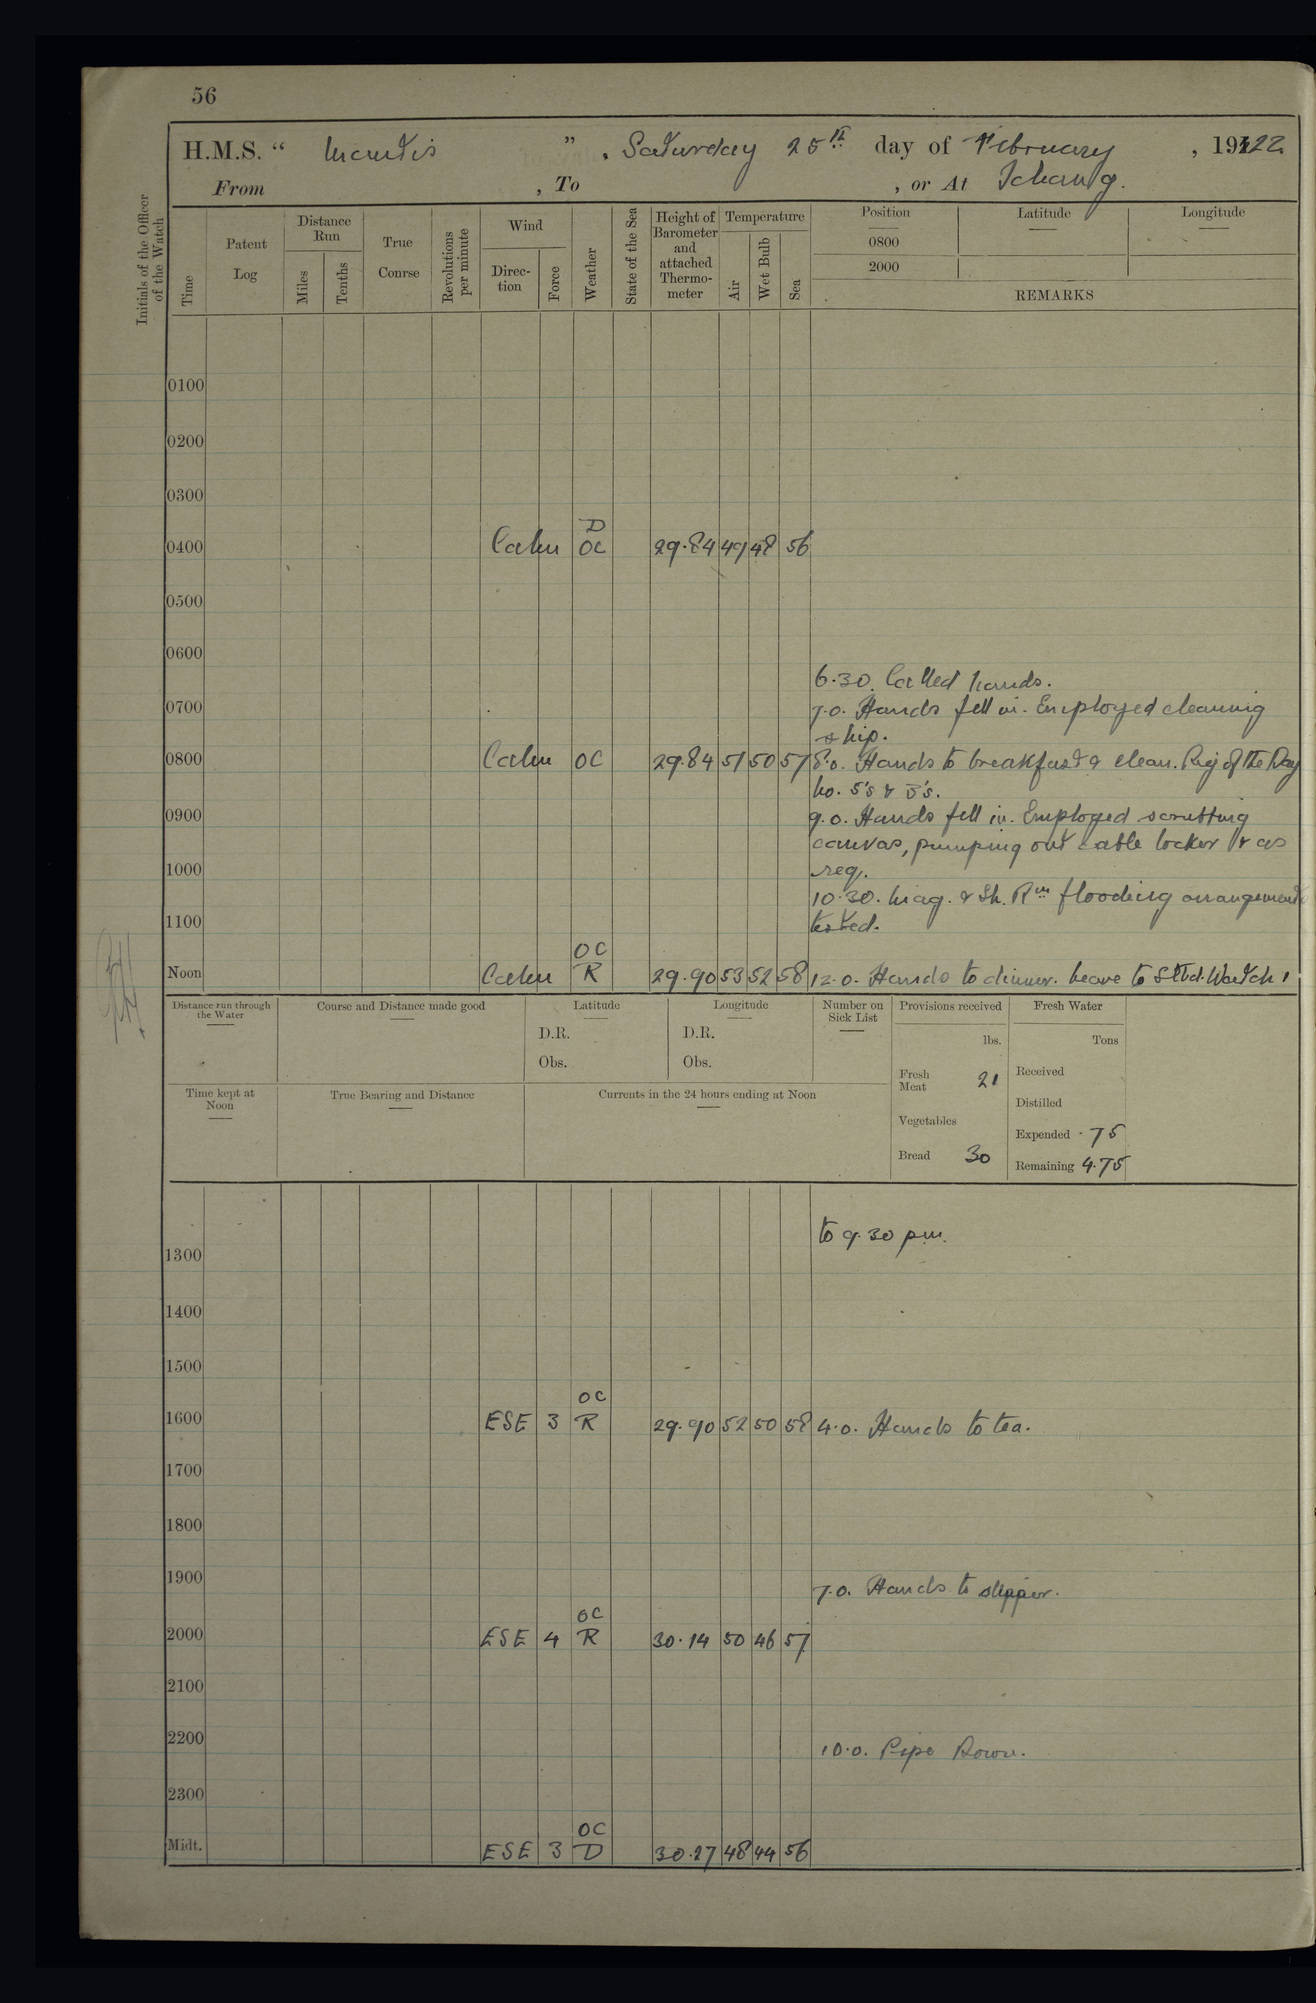 56
H.M.S. " Mantis ", Saturday 25th day of February, 1922
From , To , or At Ichang.
Initials of the Officer of the Watch
Time
Patent Log
Distance Run
Miles
Tenths
True Course
Revolutions per minute
Wind
Direc-tion
Force
Weather
State of the Sea
Height of Barometer and attached Thermo-meter
Temperature
Air
Wet Bulb
Sea
Position
Latitude
Longitude
0800
2000
REMARKS
0100
0200
0300
D
0400 Calm OC 29.84 49 48 56
0500
0600
6.30. Called hands.
0700 7.0. Hands fell in. Employed cleaning
ship.
0800 Calm OC 29.84 51 50 57 8.0. Hands to breakfast & clean. Rig of the Day
No. 5's & 3's.
0900 9.0. Hands fell in. Employed scrubbing
canvas, pumping out cable locker & as
1000 req.
10.30. Mag. & Sh. Rm flooding arrangements
1100 tested.
OC
Noon Calm R 29.90 53 52 58 12.0. Hands to dinner. Leave to Stbd. Watch 1
Distance run through the Water
Course and Distance made good
Latitude
D.R.
Obs.
Longitude
D.R.
Obs.
Number on Sick List
Provisions received
lbs.
Fresh Meat 21
Vegetables
Bread 30
Fresh Water
Tons
Received
Distilled
Expended .75
Remaining 4.75
Time kept at Noon
True Bearing and Distance
Currents in the 24 hours ending at Noon
to 9.30 p.m.
1300
1400
1500
OC
1600 ESE 3 R 29.90 52 50 58 4.0. Hands to tea.
1700
1800
1900 7.0. Hands to supper.
OC
2000 ESE 4 R 30.14 50 46 57
2100
2200 10.0. Pipe Down.
2300
OC
Midt. ESE 3 D 30.27 48 44 56